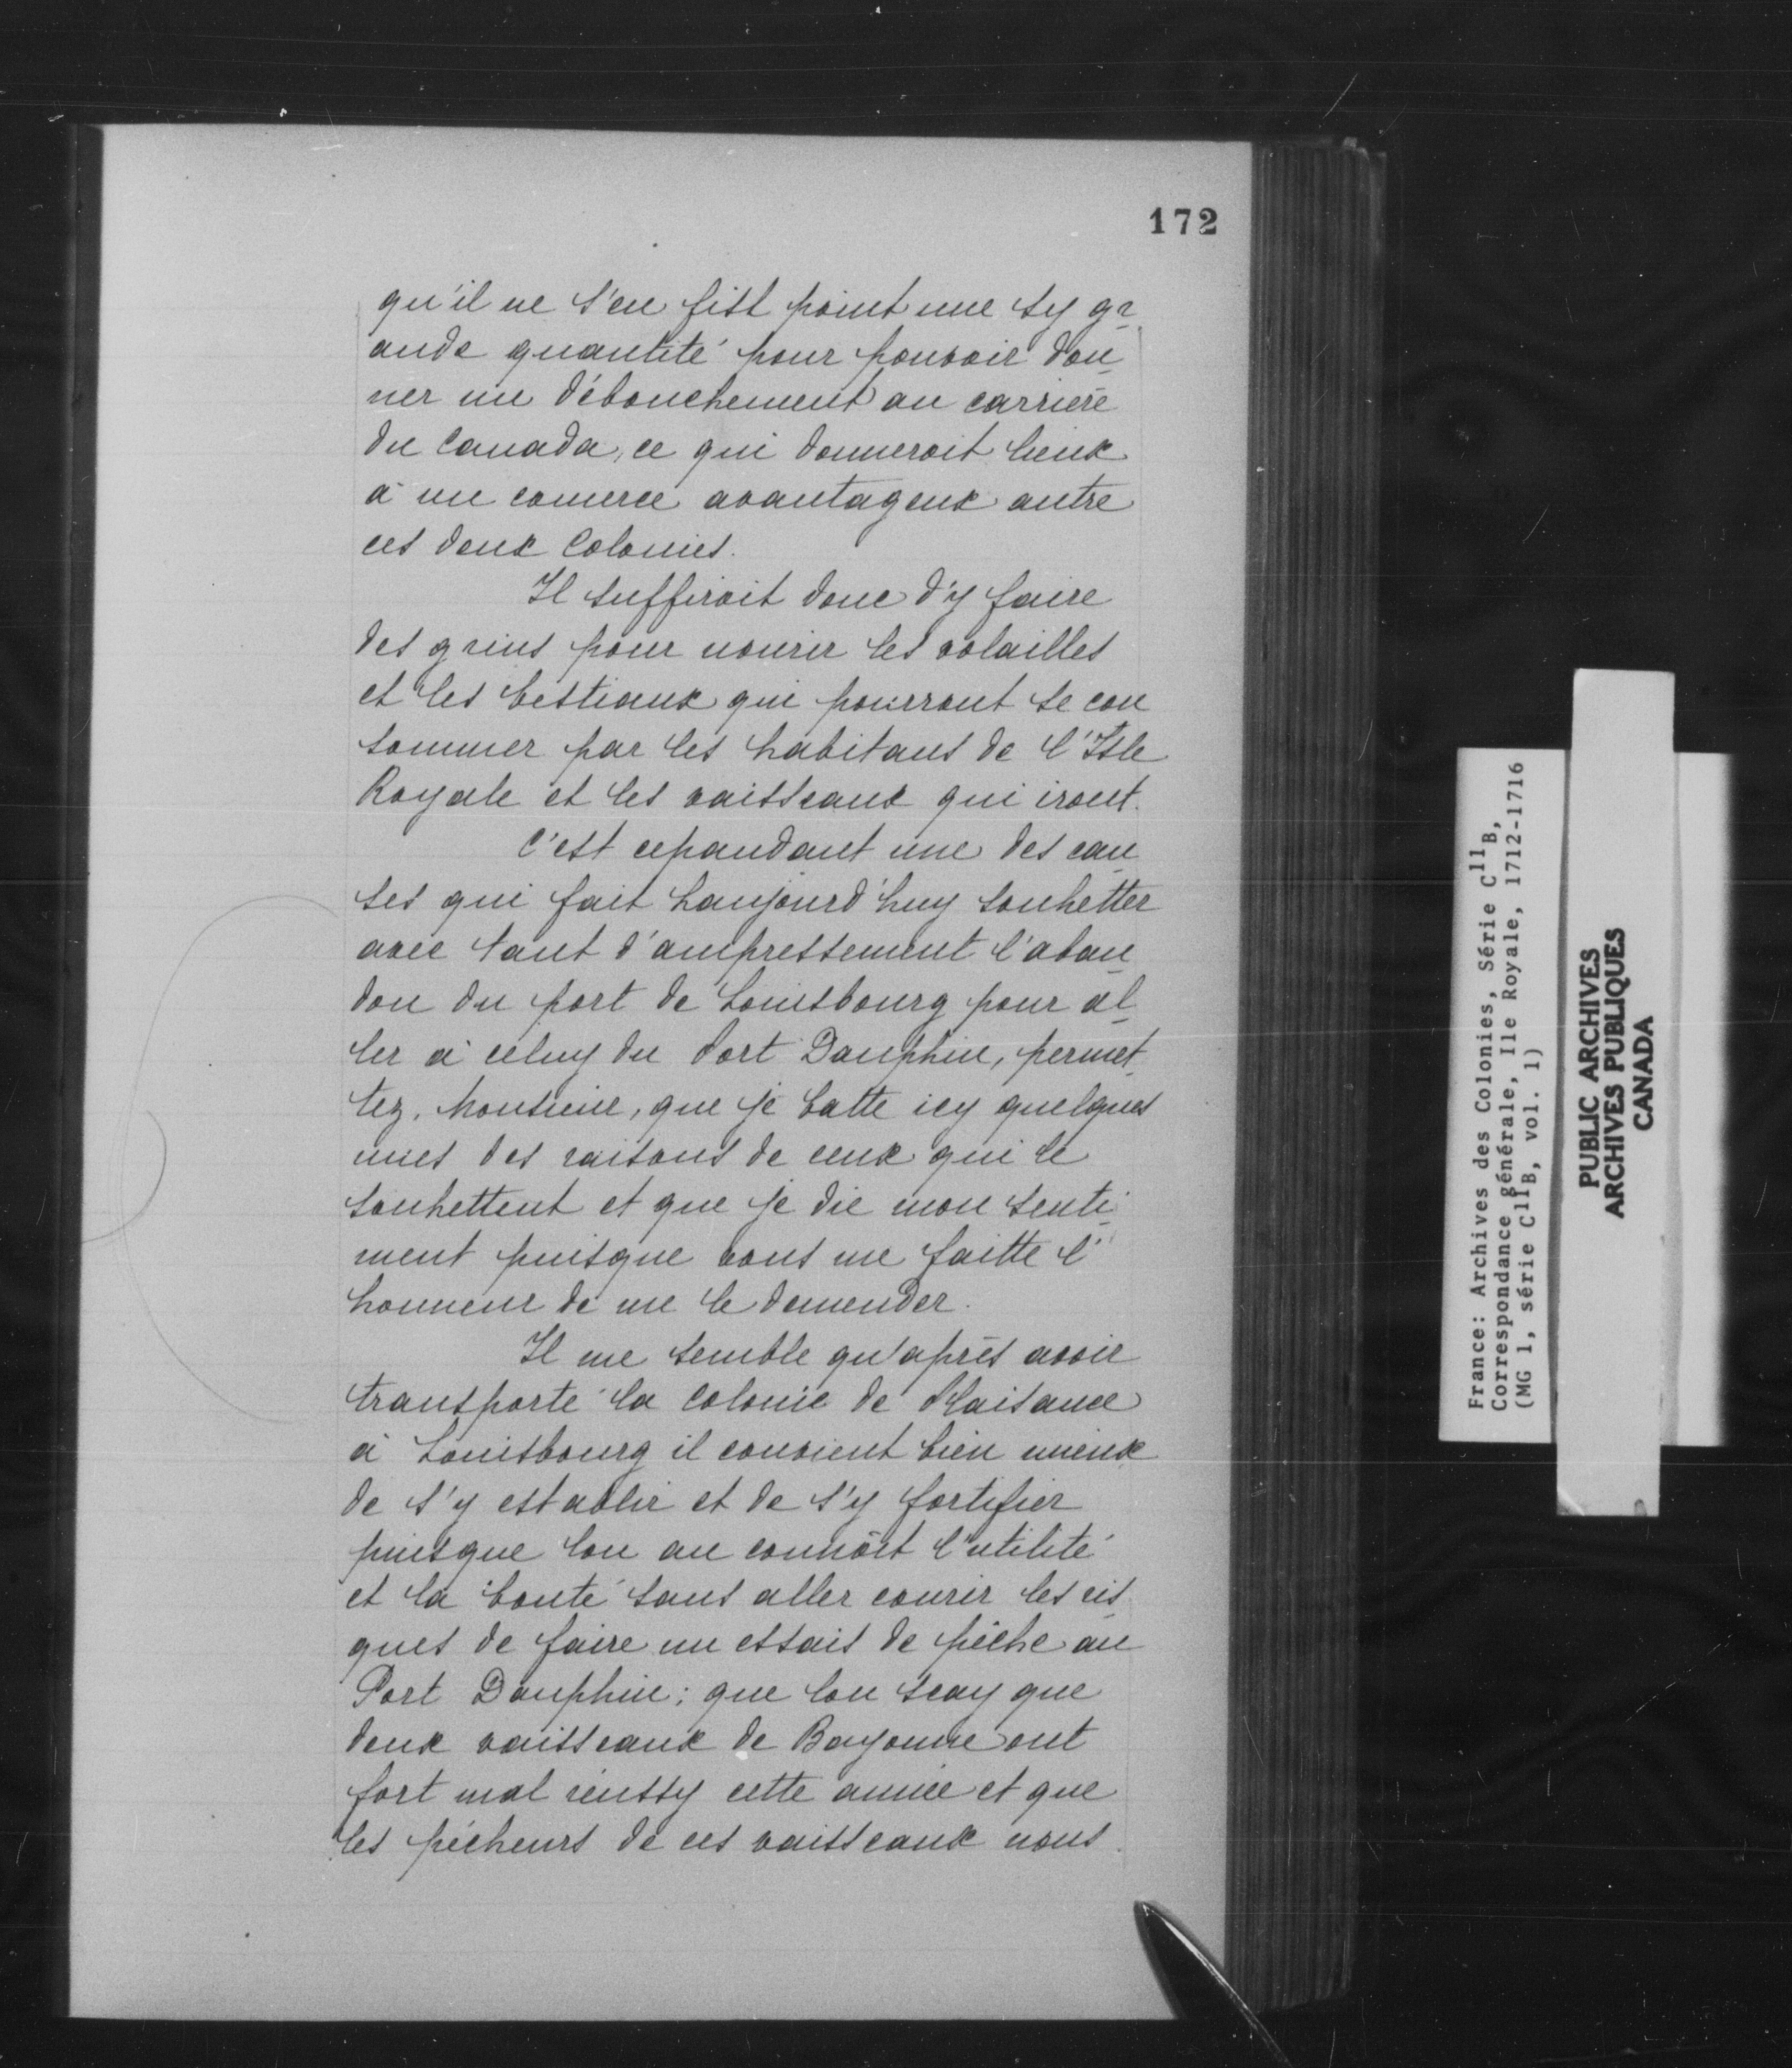 172
qu'il ne s'en fist point une sy gr
ande quantité pour pouvoir don
ner un débouchement au carriere
du Canada, ce qui donneroit lieux
à un comerce avantageux autre
ces deux Colonies.
Il suffiroit donc d'y faire
des grins pour nourir les volailles
et les bestiaux qui pourront se con
sommer par les habitans de l'Isle
Royale et les vaisseaux qui iront.
C'est cepandant une des cau
ses qui fait haujourd'huy souhetter
avec tant d'ampressement l'aban
don du port de Louisbourg pour al
ler à celuy du Port Dauphin, permet
tez, Monsieur, que je batte icy quelques
unes des raisons de ceux qui le
souhettent et que je die mon senti
ment puisque vous me faitte l'
honneur de me le demender.
Il me semble qu'après avoir
transporté la colonie de Plaisance
à Louisbourg il convient bien mieux
de s'y establir et de s'y fortifier
puisque lon an connoit l'utilité
et la bonté sans aller courir les ris
ques de faire un essais de pêche au
Port Dauphin; que lon scay que
deux vaisseaux de Bayonne ont
fort mal réussy cette année et que
les pêcheurs de ces vaisseaux nous
France: Archives des Colonies, Série C11B,
Correspondance générale, Ile Royale, 1712-1716
(MG 1, série C11B, vol. 1)
PUBLIC ARCHIVES
ARCHIVES PUBLIQUES
CANADA